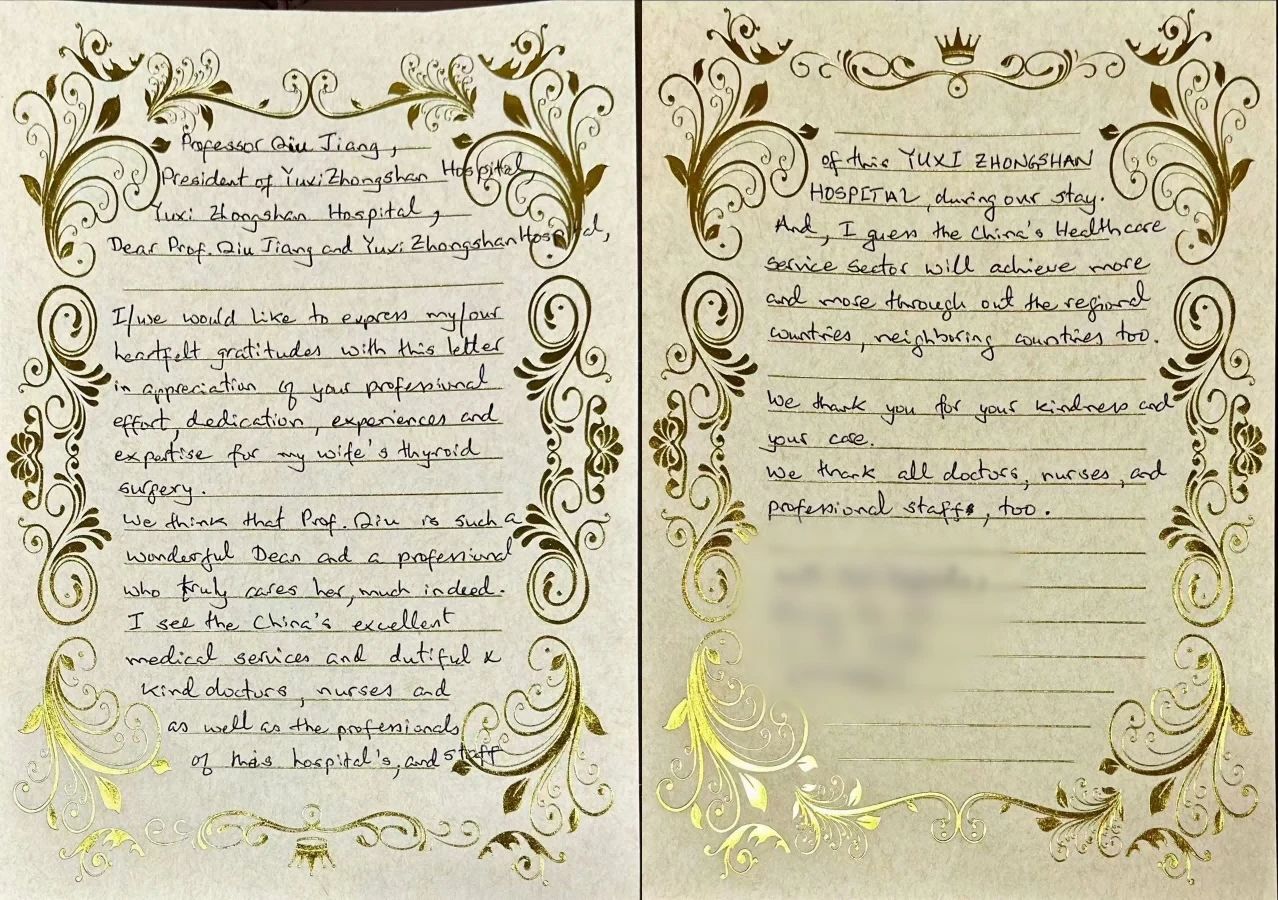 Professor Qiu Jiang,
President of Yuxi Zhongshan Hospital,
Yuxi Zhongshan Hospital,
Dear Prof. Qiu Jiang and Yuxi Zhongshan Hospital,
I/we would like to express my/our
heartfelt gratitudes with this letter
in appreciation of your professional
effort, dedication, experiences and
expertise for my wife's thyroid
surgery.
We think that Prof. Qiu is such a
wonderful Dean and a professional
who truly cares her, much indeed.
I see the China's excellent
medical services and dutiful &
kind doctors, nurses and
as well as the professionals
of this hospital's, and staff
of this YUXI ZHONGSHAN
HOSPITAL, during our stay.
And, I guess the China's Healthcare
service sector will achieve more
and more through out the regional
countries, neighboring countries too.
We thank you for your kindness and
your care.
We thank all doctors, nurses, and
professional staffs, too.